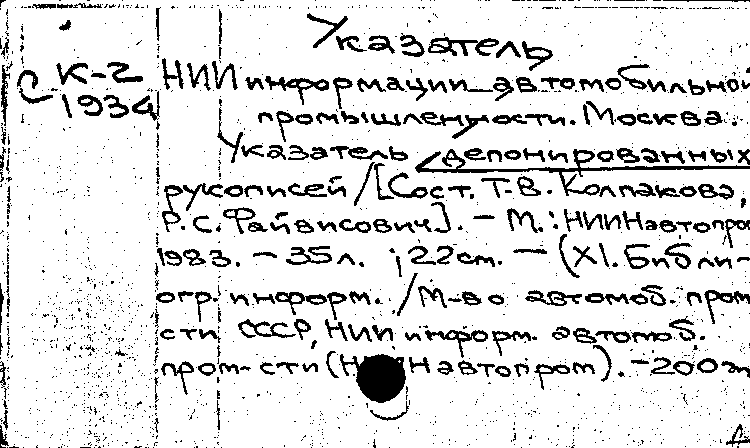 Указатель
С К-2
1934
НИИ информации автомобильной
промышленности. Москва.
Указатель депонированных
рукописей / [Сост. Т.В. Колпакова,
Р.С. Файвисович]. - М.: НИИНавтопро
1983. - 35л. ; 22см. - (XI. Библи-
огр. информ. / М-во автомоб. пром
сти СССР, НИИ информ. автомоб.
пром-сти (НИИНавтопром). - 200